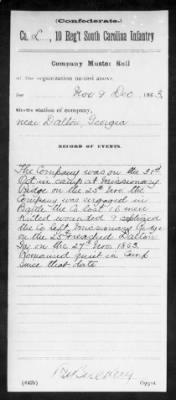 (Confederate.)
Co. L, 10 Reg't South Carolina Infantry
Company Muster Roll
of the organization named above,
for Nov & Dec, 1863.
Station of company,
near Dalton, Georgia
RECORD OF EVENTS.
The Company was on the 31st
Oct in camp at Missionary
Ridge on the 25th Nov the
Company was engaged in
Battle the Co lost 16 men
killed wounded & captured
the Co left Missionary Ridge
on the 25 & reached Dalton
Ga on the 27th Nov 1863.
Remained quiet in Camp
Since that date
Copyist.